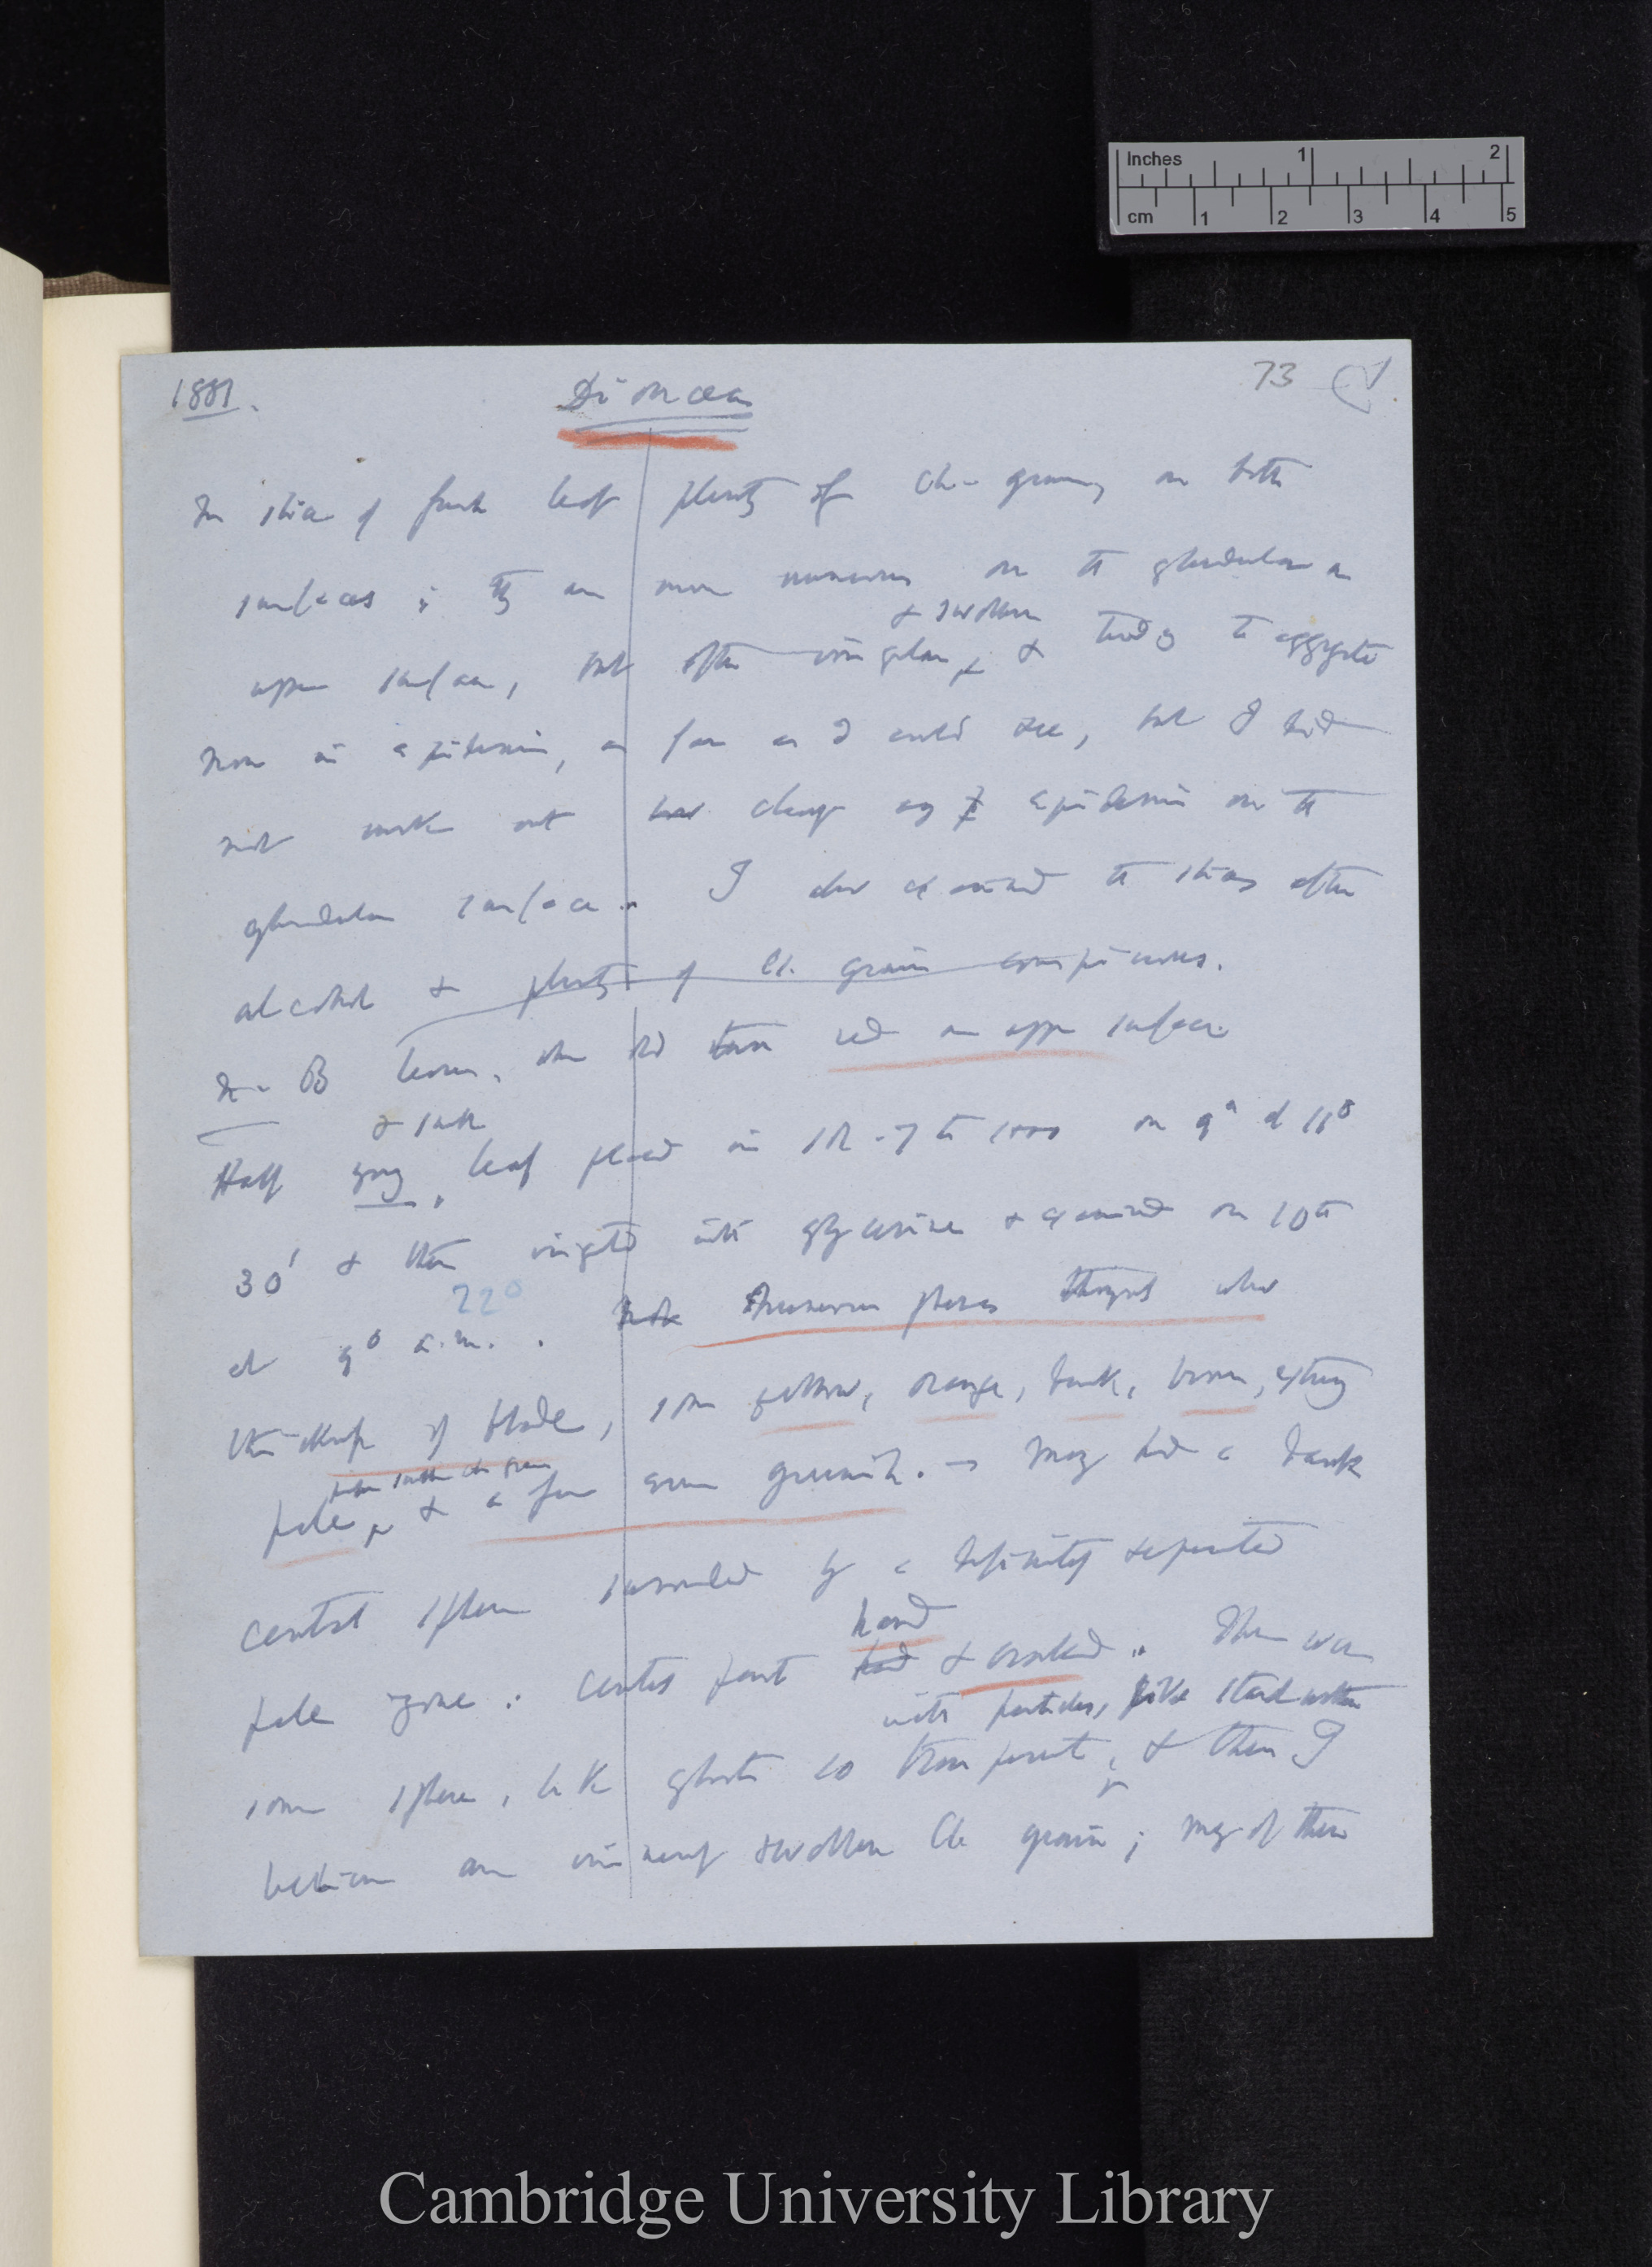 Inches 1 2
cm 1 2 3 4 5
1881. Dionæa 73
In slice of fresh leaf plenty of Ch. grains, on both
surfaces; they are more numerous on the glandular or
& swollen
upper surface, but often irregular, & tend to aggregate
None in epidermis, as far as I could see, but I did
not make out clearly any epidermis on the
glandular surface. I also examined the slices after
alcohol & plenty of Ch. grains conspicuous.
N. B leaves, when old turn red on upper surface
Half young, leaf placed in 7 to 1000 on 9th at
30' & then into glycerine & examined on 10th
22°
at 9° a.m. Numerous spheres throughout whole
thickness of blade, some yellow, orange, dark, brown, extremely
pale, & a few even greenish. — Many had a dark
central sphere surrounded by a definitely separated
hard
pale zone: central part had & cracked. There were
with particles, like starch within
some spheres, like ghosts so transparent, & then I
believe are immensely swollen Ch grains; many of these
Cambridge University Library